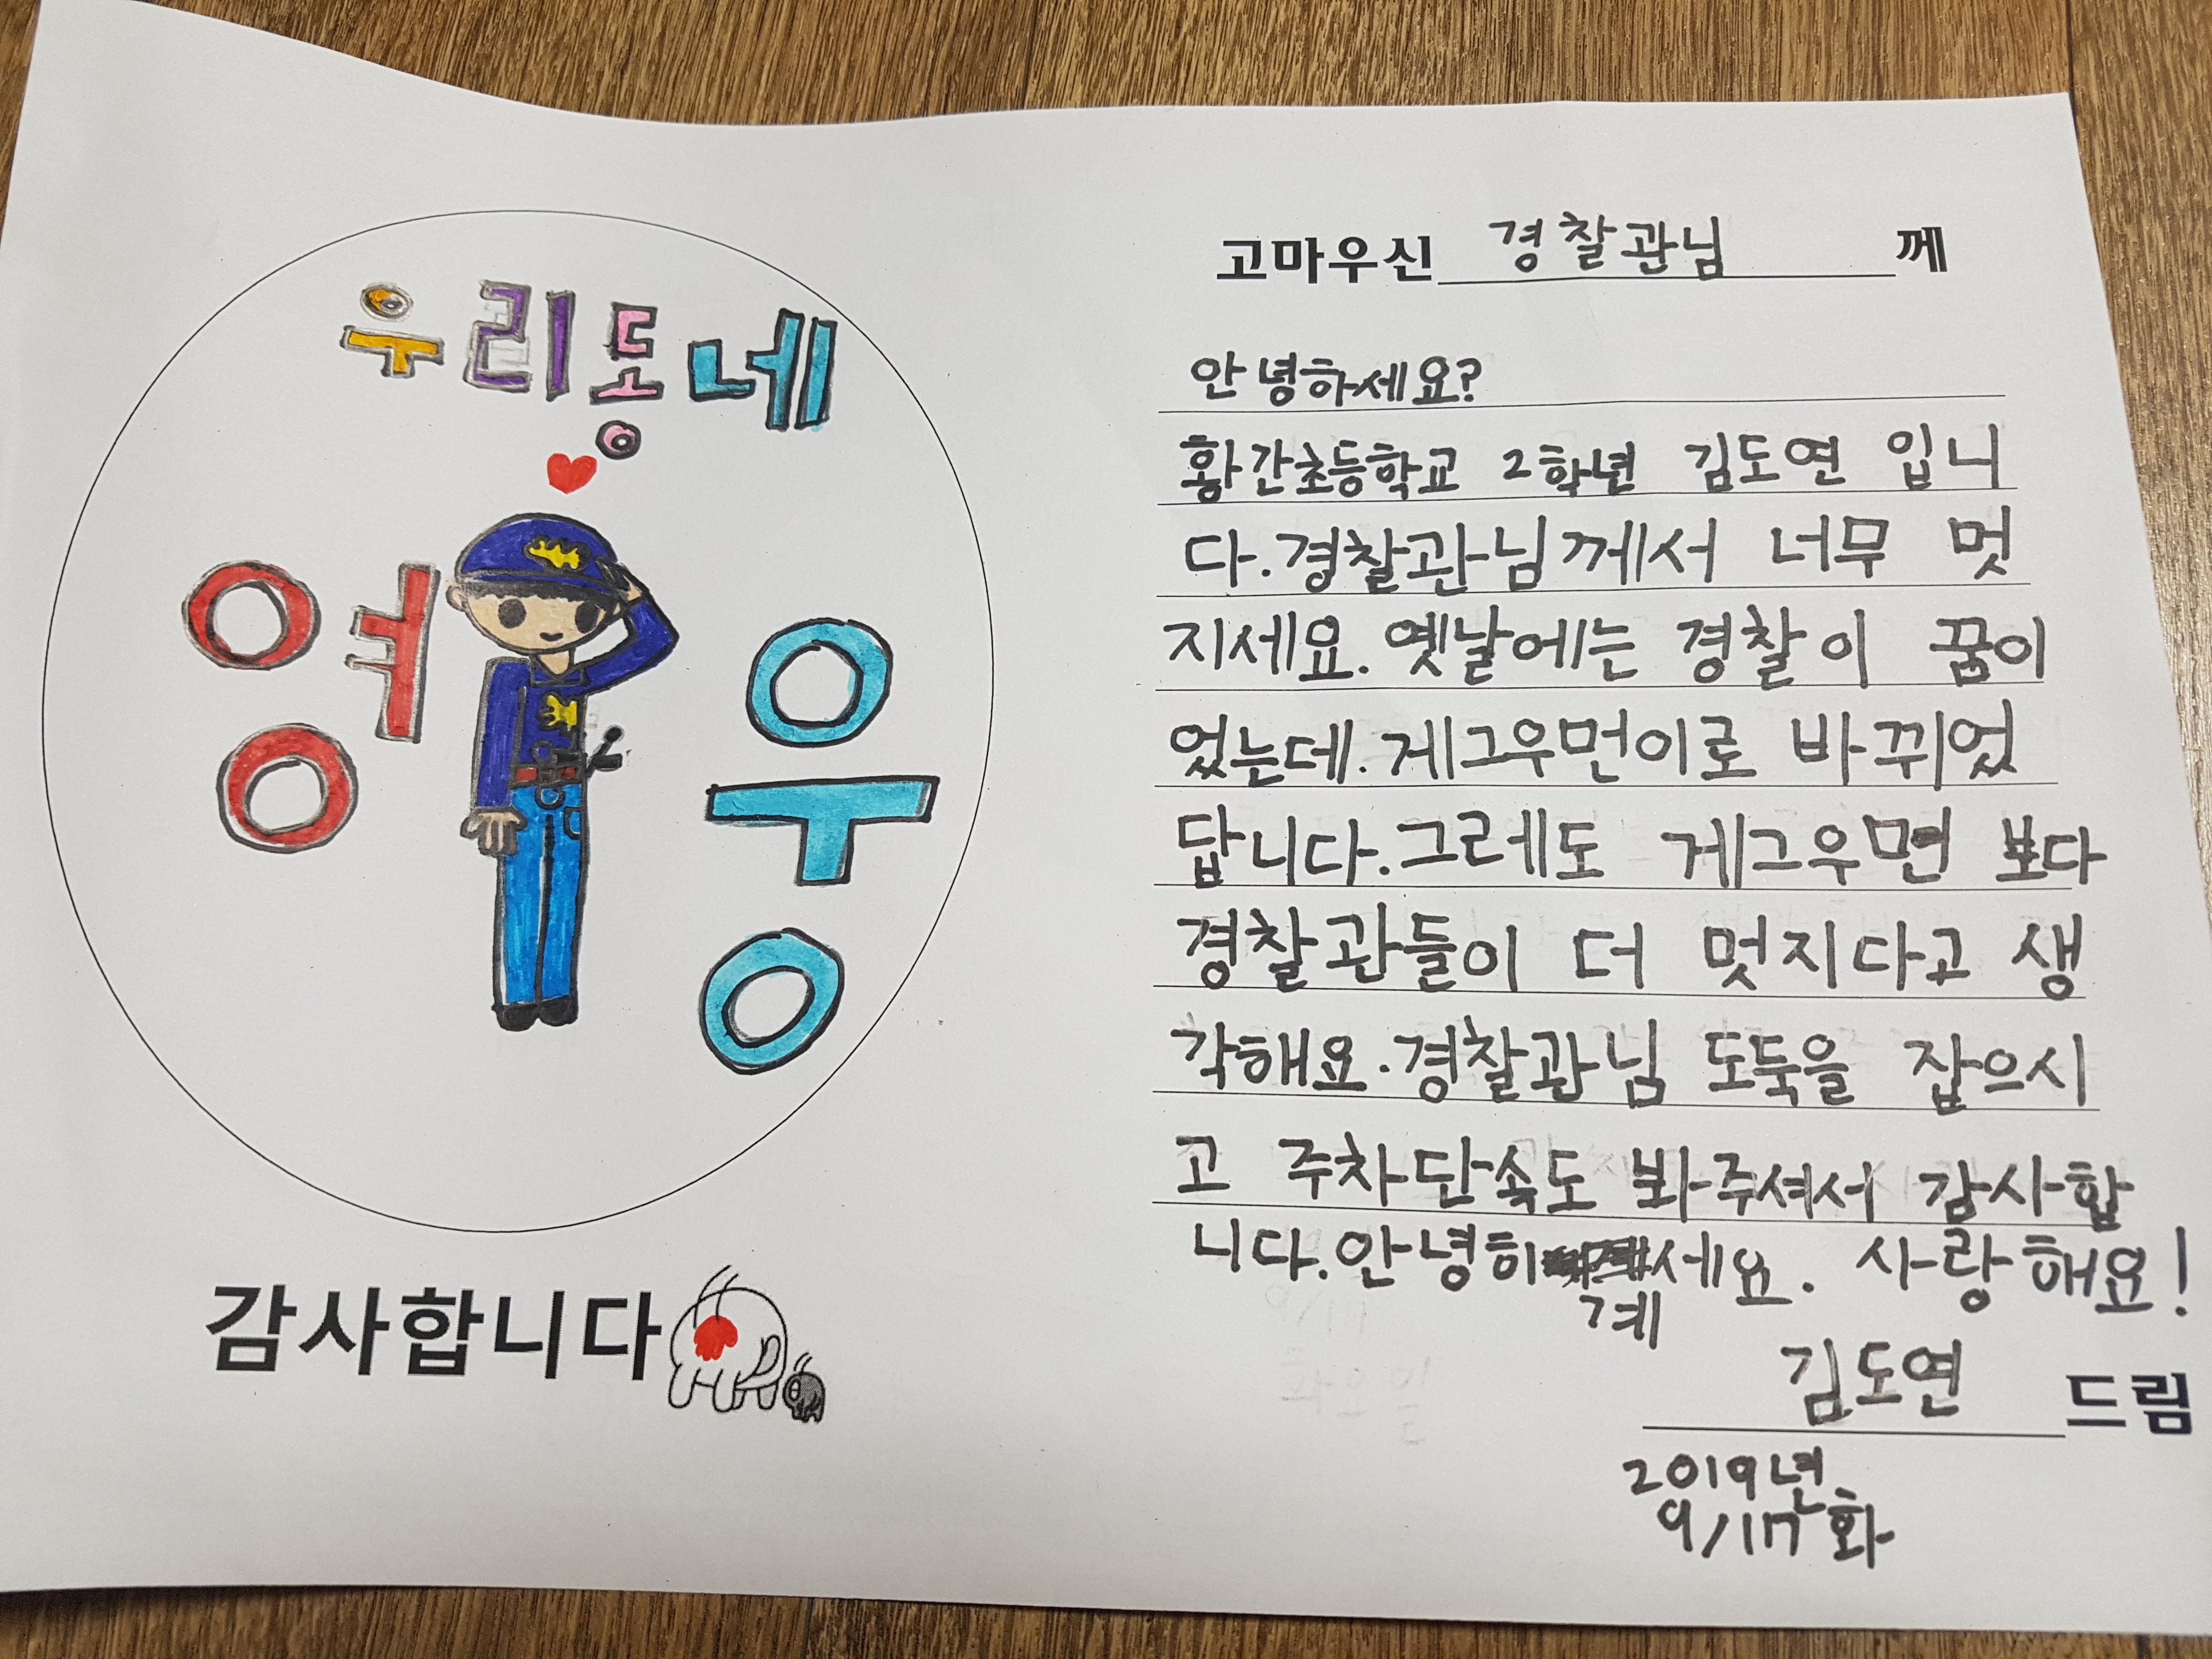 우리동네
영웅
감사합니다
고마우신 경찰관님 께
안녕하세요?
황간초등학교 2학년 김도연 입니
다.경찰관님께서 너무 멋
지세요. 옛날에는 경찰이 꿈이
었는데.게그우먼이로 바뀌었
답니다.그레도 게그우먼 보다
경찰관들이 더 멋지다고 생
각해요.경찰관님 도둑을 잡으시
고 주차단속도 봐주셔서 감사합
니다.안녕히 계세요. 사랑해요!
김도연 드림
2019년
9/17화